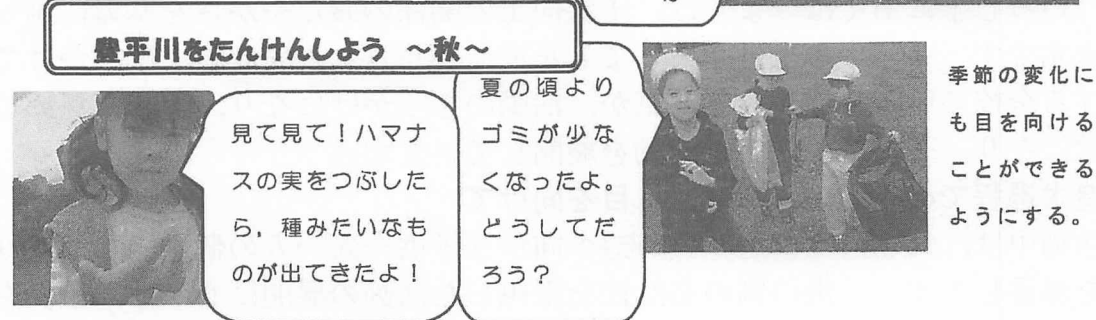 豊平川をたんけんしよう ～秋～
見て見て！ハマナ
スの実をつぶした
ら，種みたいなも
のが出てきたよ！
夏の頃より
ゴミが少な
くなったよ。
どうしてだ
ろう？
季節の変化に
も目を向ける
ことができる
ようにする。